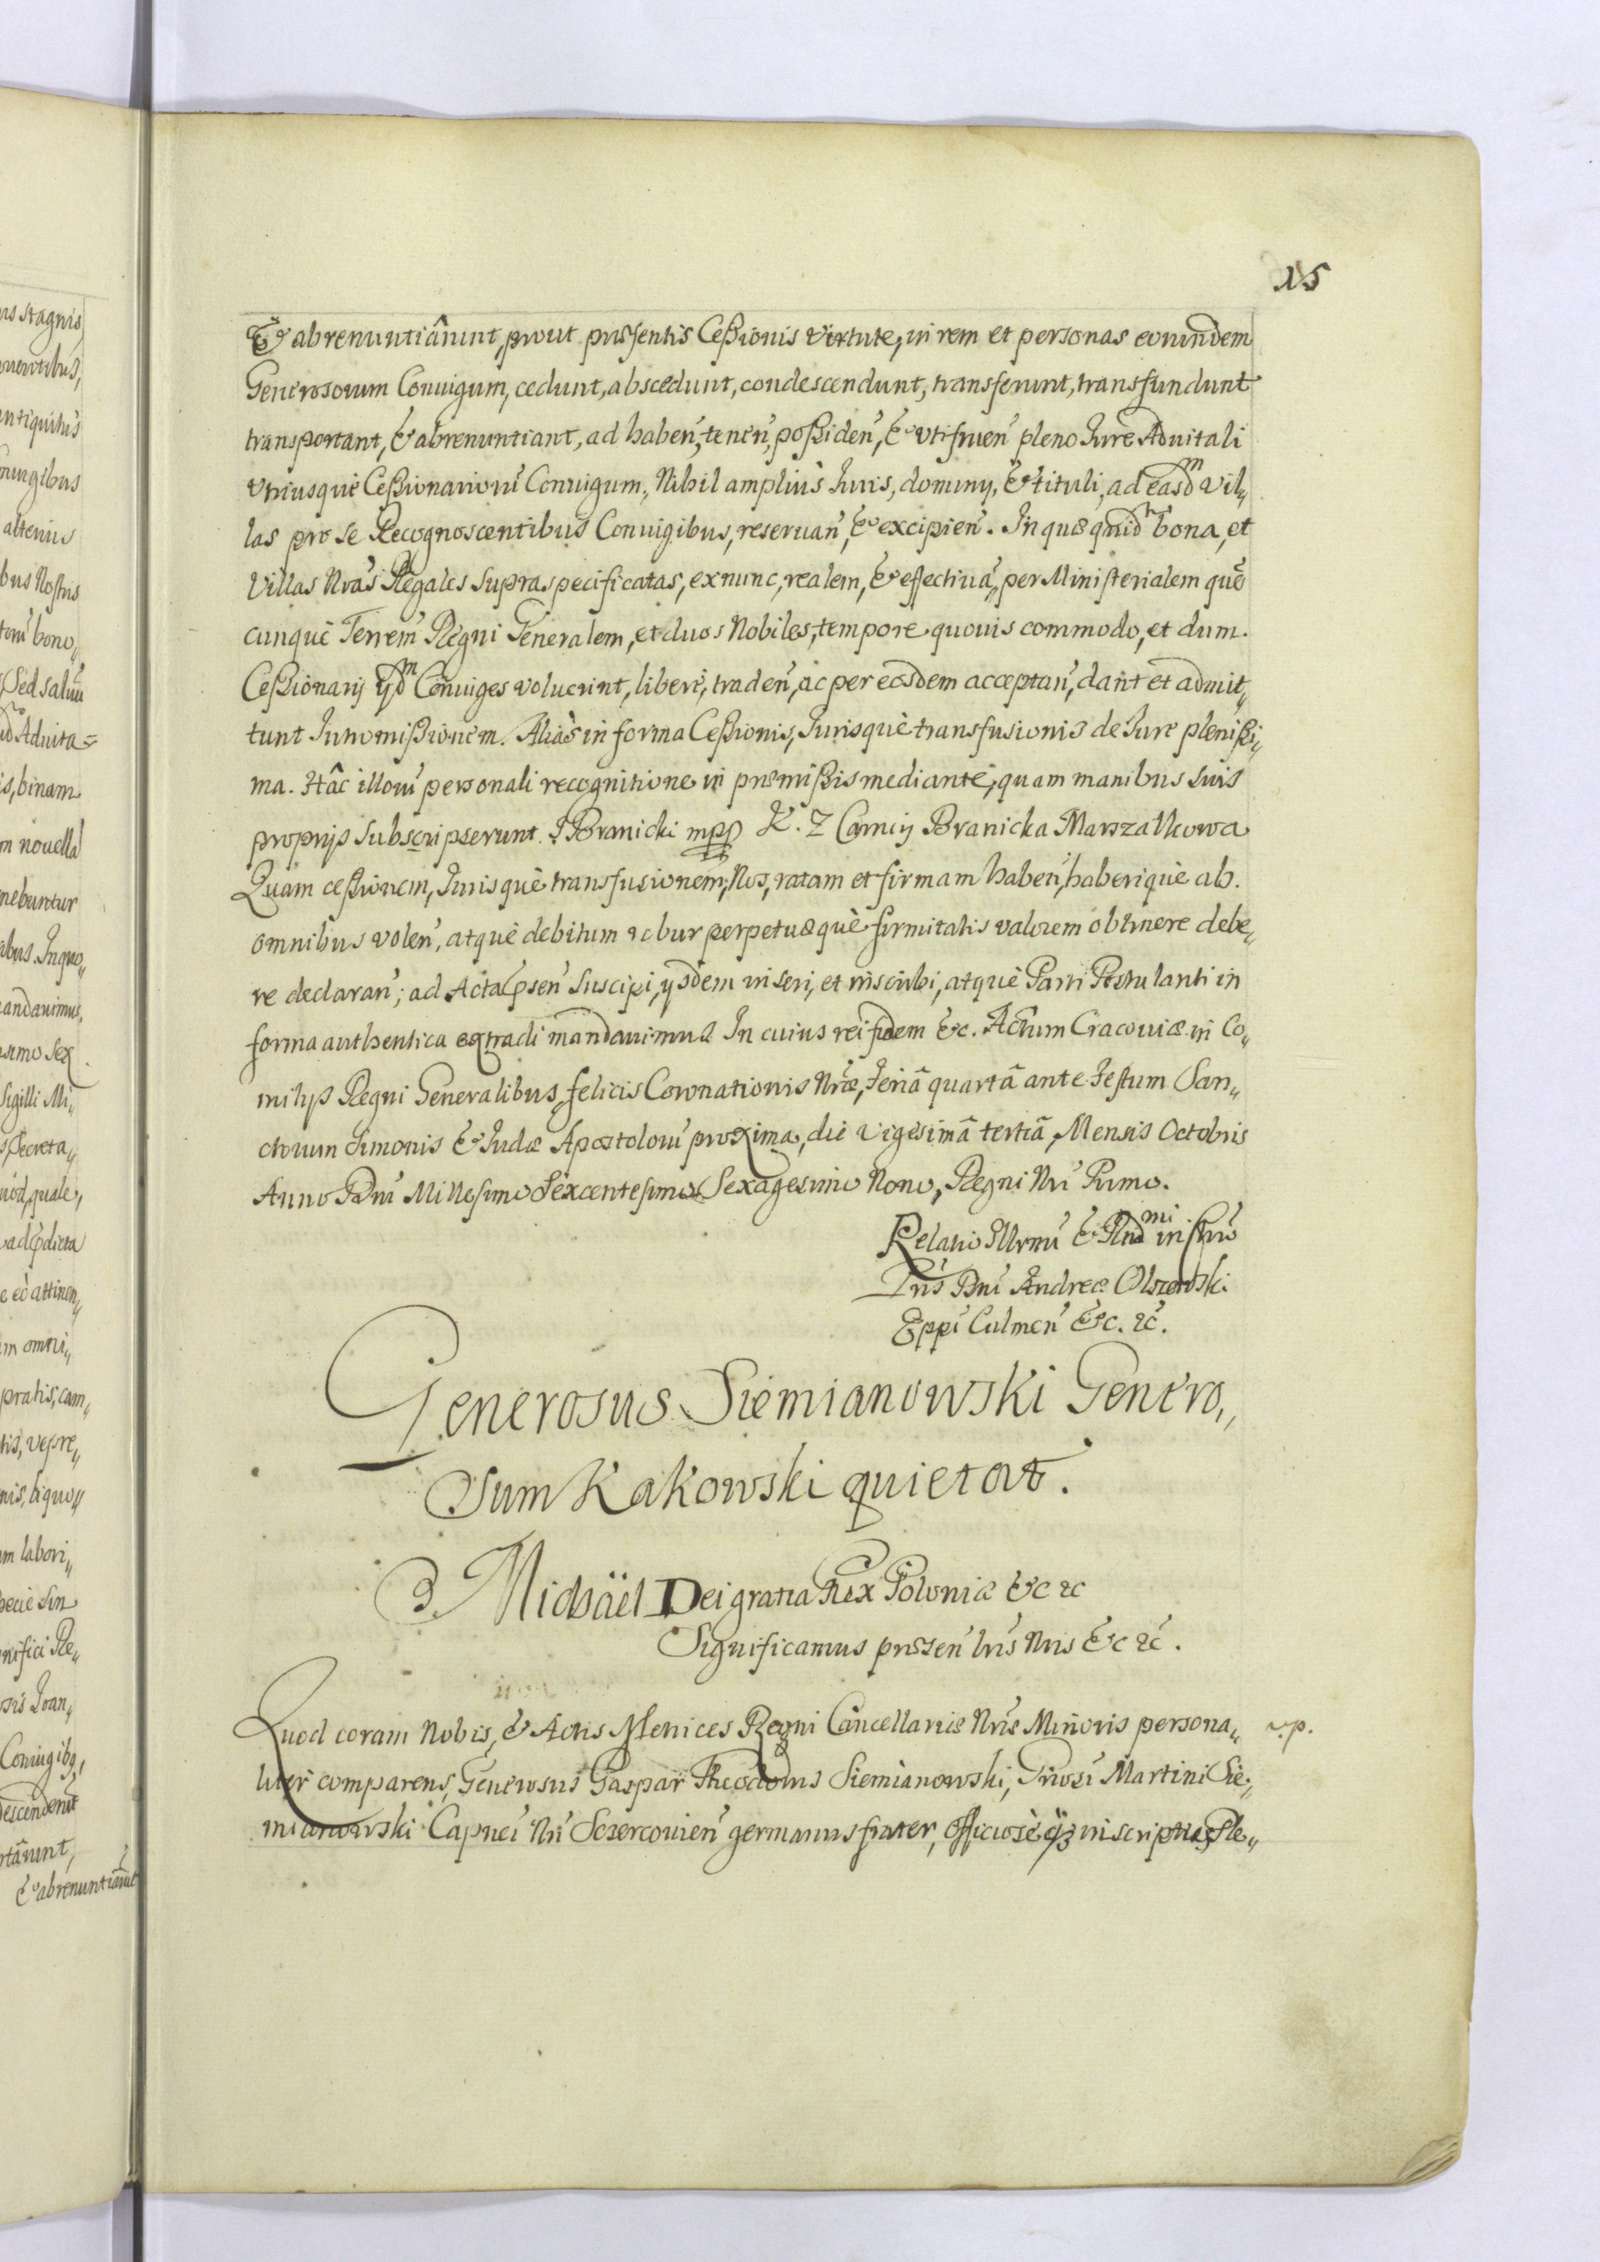 15
& abrenuntiârunt, prout præsentis Cessionis virtute, in rem et personas eorundem
Generosorum Coniugum, cedunt, abscedunt, condescendunt, transferunt, transfundunt
transportant, & abrenuntiant, ad haben̄, tenen̄, possiden̄, & vtifruen̄ pleno Iure Aduitali
vtriusquè Cessionarioru̅ Coniugum, Nihil ampliùs Iuris, dominij, & tituli, ad easdm vil„
las pro se Recognoscentibus Coniugibus, reseruan̄, & excipien̄. In quæ quid bona, et
Villas Nrãs Regales supraspecificatas, exnunc, realem, & effectiuã, per Ministerialem que̅
cunquè Terrem̄ Regni Generalem, et duos Nobiles, tempore quouis commodo, et dum.
Cessionarij ijdm Coniuges voluerint, liberè, traden̄, ac per eosdem acceptan̄, dant et admit„
tunt Intromissionem. Aliàs in forma Cessionis, Iurisquè transfusionis de Iure plenissi„
ma. Hâc illoru̅ personali recognitione in præmissis mediante, quam manibus suis
proprijs subscripserunt. J Branicki mpp K. Z Branicka Marszalkowa
Quam cessionem, Iurisquè transfusionem, Nos, ratam et firmam haben̄, haberiquè ab.
omnibus volen̄, atquè debitum robur perpetuæquè firmitatis valorem obtinere debe„
re declaran̄; ad Acta p̄sen̄ suscipi, ijsdem inseri, et inscribi, atquè Parti Postulanti in
forma authentica extradi mandauimus In cuius rei fidem &c. Actum Cracouiæ in Co„
mitijs Regni Generalibus, felicis Coronationis Nræ, feriâ quartâ ante Festum San„
ctorum Simonis & Iudæ Apostoloru̅ proxima, die vigesimâ tertiâ Mensis Octobris
Anno Dn̅i Millesimo Sexcentesimo Sexagesimo Nono, Regni Nri Primo.
Relatio Illrmi & Rndmi in Chro
Pris Dn̅i Andreæ Olszowski
Eppi Culmen̄ &c. &c.
Generosus Siemianowski Genero„
sum Kakowski quietat.
Michäel Dei gratia Rex Poloniæ &c &c
Significamus præsen̄ lris Nris &c &c.
Quod coram Nobis, & Actis Metrices Regni Cancellariæ Nræ Minoris persona„ v.p.
liter comparens, Generosus Gaspar Theodorus Siemianowski, Gnosi Martini Sie„
mianowski Capnei Nri Sczercouien̄ germanus frater, Officiosè inscriptus Ple„